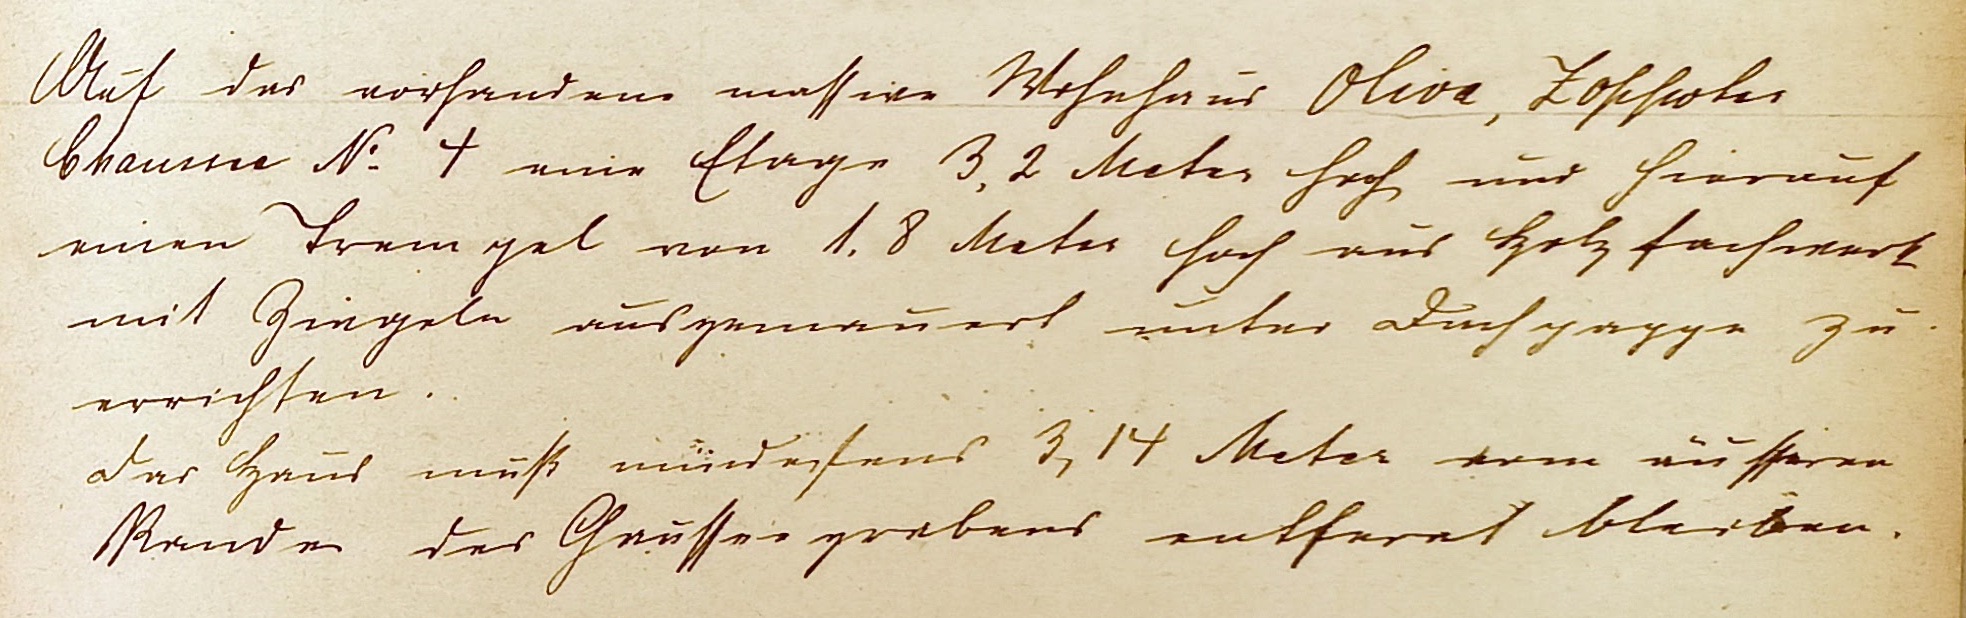 Auf das vorhandene massive Wohnhaus Oliva, Zoppoter
Chaussee No. 4 eine Etage 3,2 Meter hoch und hierauf
einen Trempel von 1.8 Meter hoch aus Holzfachwerk
mit Ziegeln ausgemauert unter Dachpappe zu
errichten.
Das Haus muß mindestens 3,14 Meter vom äusseren
Rande des Chausseegrabens entfernt bleiben.